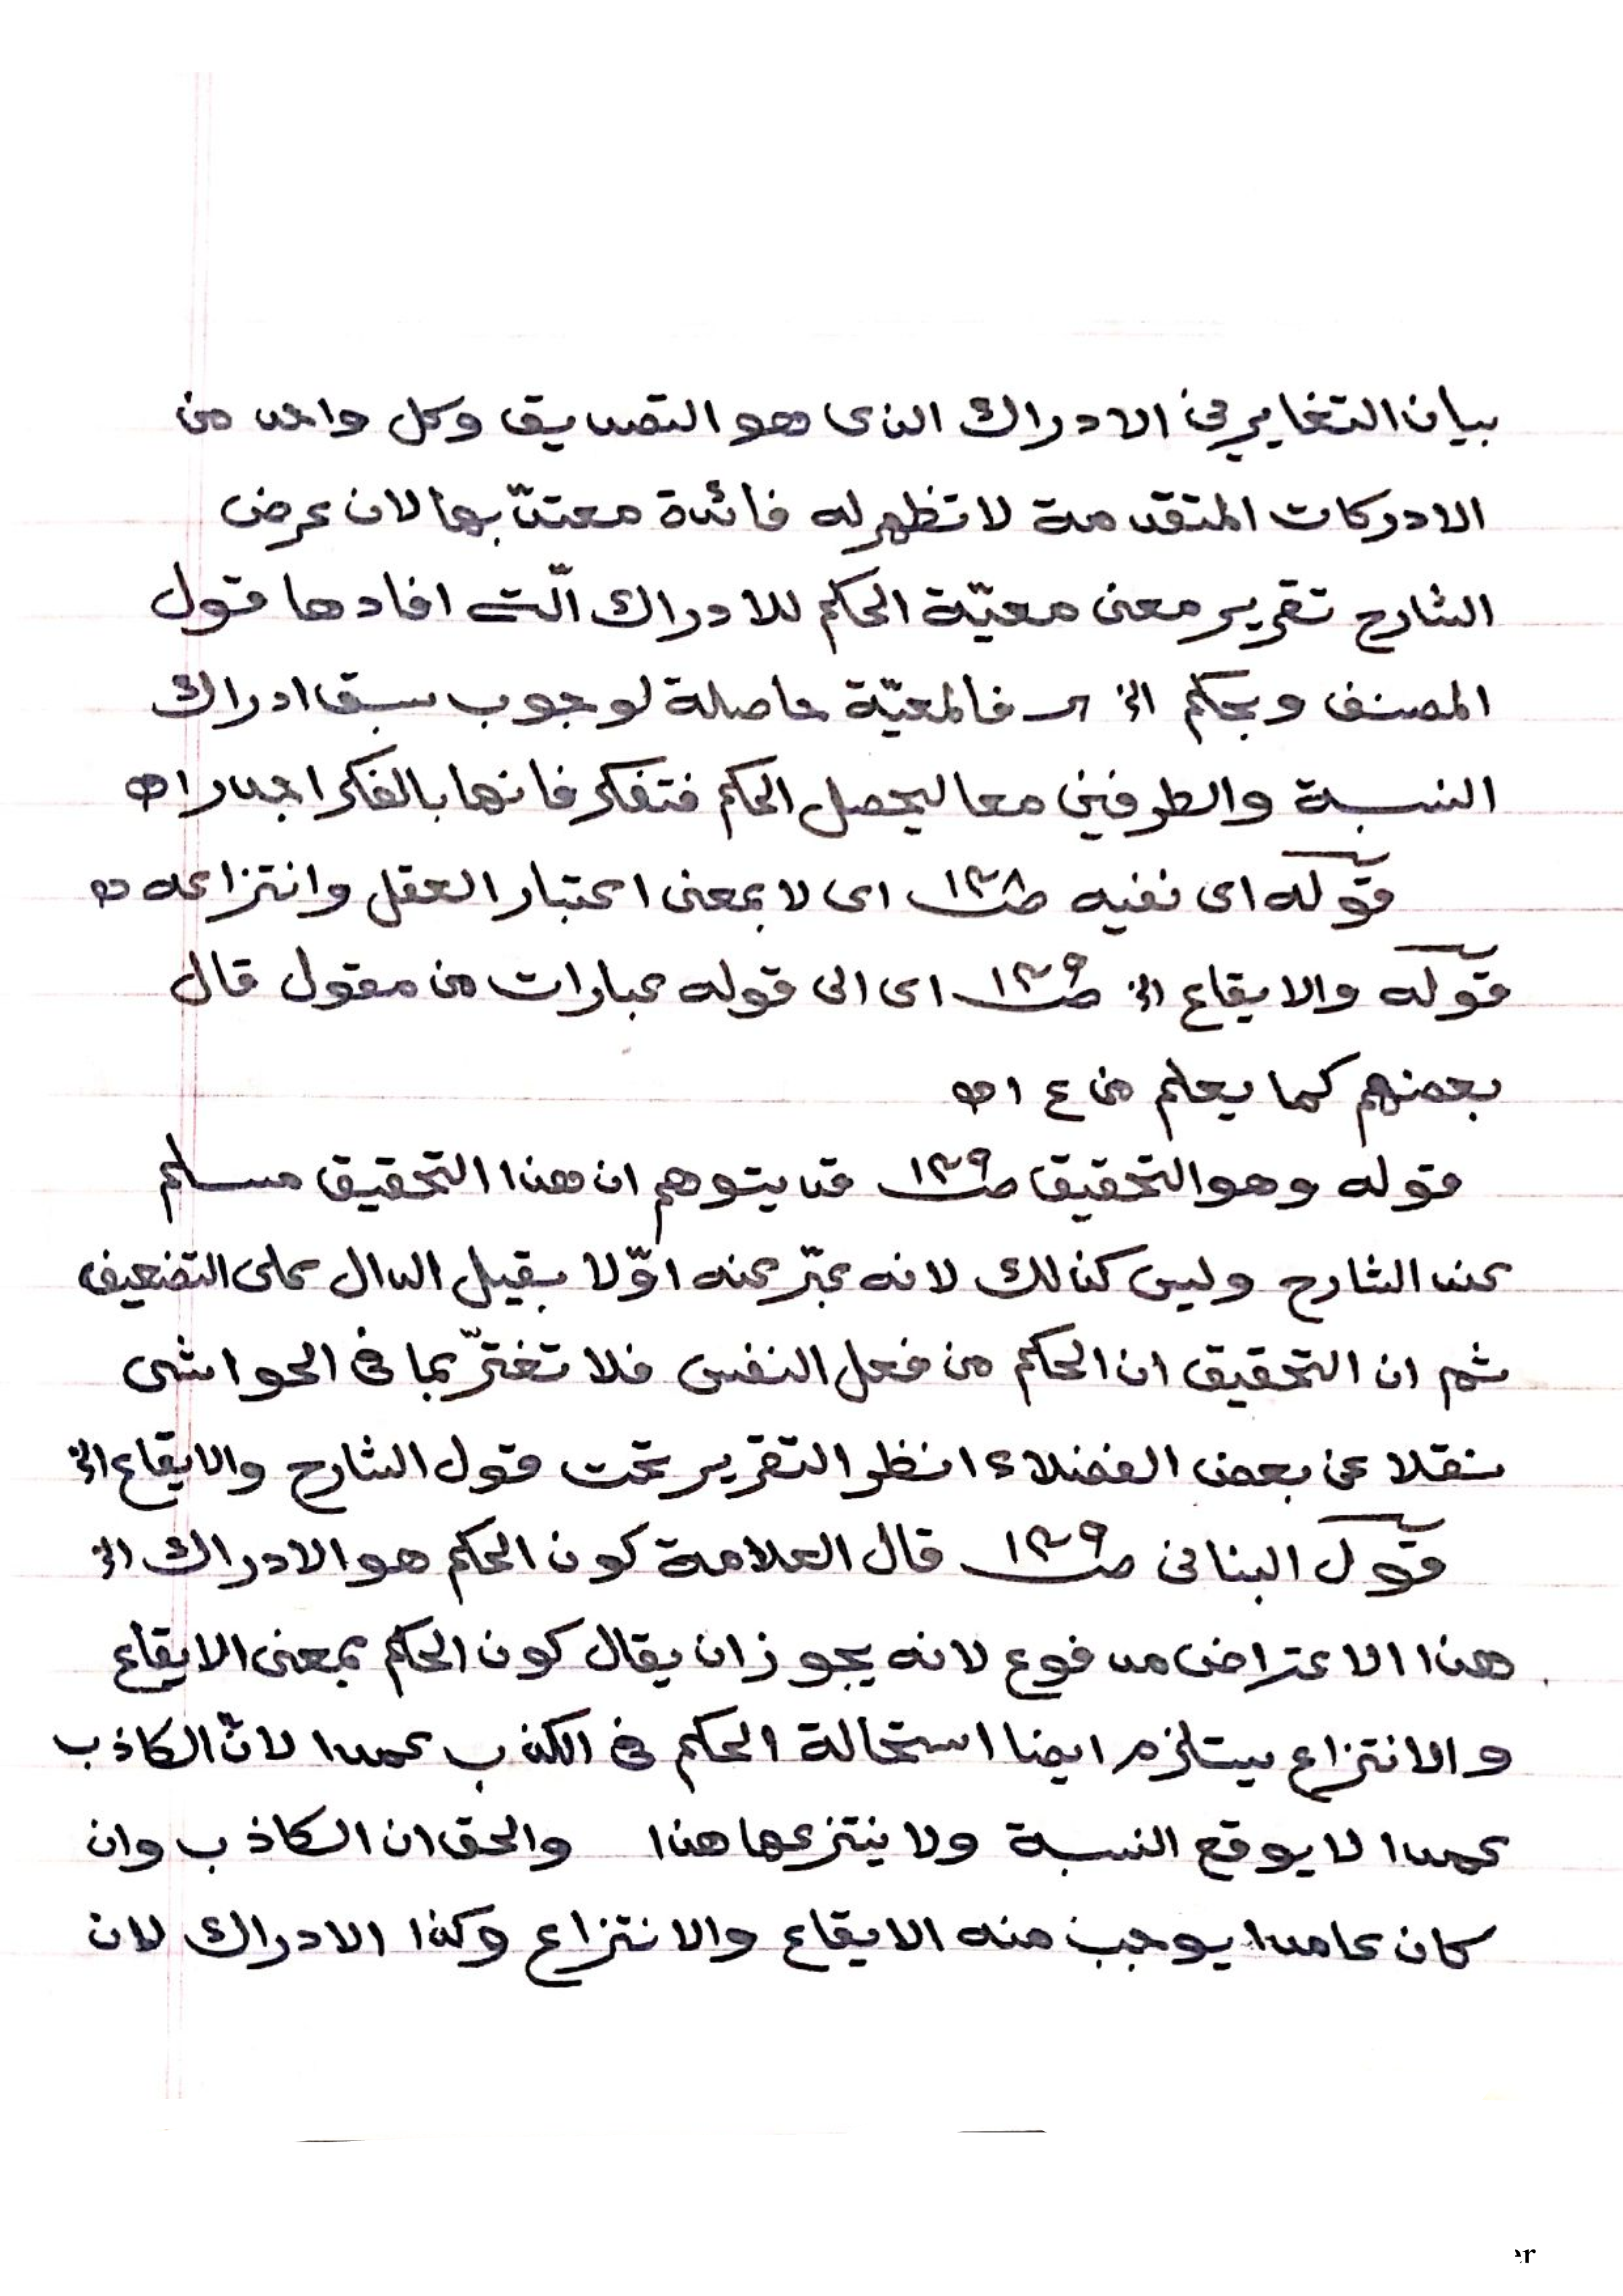 بيان التغاير في الادراك الذى هو التصديق وكل واحد من
الادركات المتقدمة لا تظهر له فائدة معتدّ بها لان غرض
الشارح تقرير معنى معيّة الحكم للادراك الّتى افادها قول
المصنف وبحكم الخ فالمعيّة حاصلة لوجوب سبق ادراك
النسبة والطرفين معا ليحصل الحكم فتفكر فانها بالفكر اجدر اه
قوله اى نفيه صـ١٣٨ اى لا بمعنى اعتبار العقل وانتزاعه
قوله والايقاع الخ صـ١٣٩ اى الى قوله عبارات من مقول قال
بعضهم كما يعلم من ع اه
قوله وهو التحقيق صـ١٣٩ قد يتوهم ان هذا التحقيق مسلم
عند الشارح وليس كذلك لانه عبّر عنه اوّلا بقيل الدال على التضعيف
ثم ان التحقيق ان الحكم من فعل النفس فلا تغترّ بما فى الحواشى
نقلا عن بعض الفضلاء انظر التقرير تحت قول الشارح والايقاع الخ
قول البنانى صـ١٣٩ قال العلامة كون الحكم هو الادراك الخ
هذا الاعتراض مدفوع لانه يجوز ان يقال كون الحكم بمعنى الايقاع
والانتزاع يستلزم ايضا استحالة الحكم فى الكذب عمدا لانّ الكاذب
عمدا لا يوقع النسبة ولا ينتزعها هذا والحق ان الكاذب وان
كان عامدا يوجب منه الايقاع والانتزاع وكذا الادراك لان
er